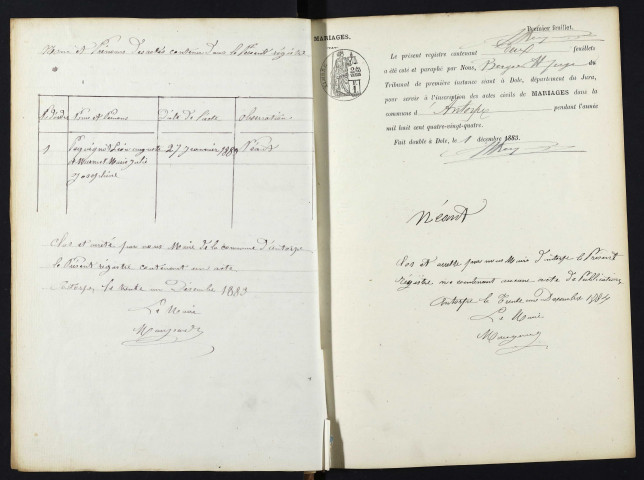 Noms et Prénoms des actes contenu dans le Présent régistre
N d'ordre Noms et Prénoms Date de l'acte observation
1 Léon auguste 27 janvier 1883 Néant
et Marie Julie
Joséphine
Clos et arrêté par nous Maire de la commune d'antorpe
le Présent régistre contenant un acte
Antorpe, le trente un Décembre 1883
Le Maire
MARIAGES.
Premier feuillet.
Le présent registre contenant Deux feuillets
a été coté et paraphé par Nous, Juge du
Tribunal de première instance séant à Dole, département du Jura,
pour servir à l'inscription des actes civils de MARIAGES dans la
commune d'Antorpe pendant l'année
mil huit cent quatre-vingt-quatre.
Fait double à Dole, le 1 décembre 1883.
Néant
Clos et arrêté par nous Maire d'antorpe le Présent
régistre ne contenant aucun acte de Publication
Antorpe le Trente un Décembre 1884
Le Maire